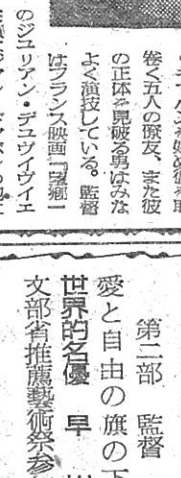 巻く五人の僚友、また彼
の正体を見破る男はみな
よく演技している。監督
はフランス映画「望郷」
のジュリアン・デュヴィヴィエ
第二部 監督
愛と自由の旗の下
世界的名優 早川
文部省推薦藝術祭参